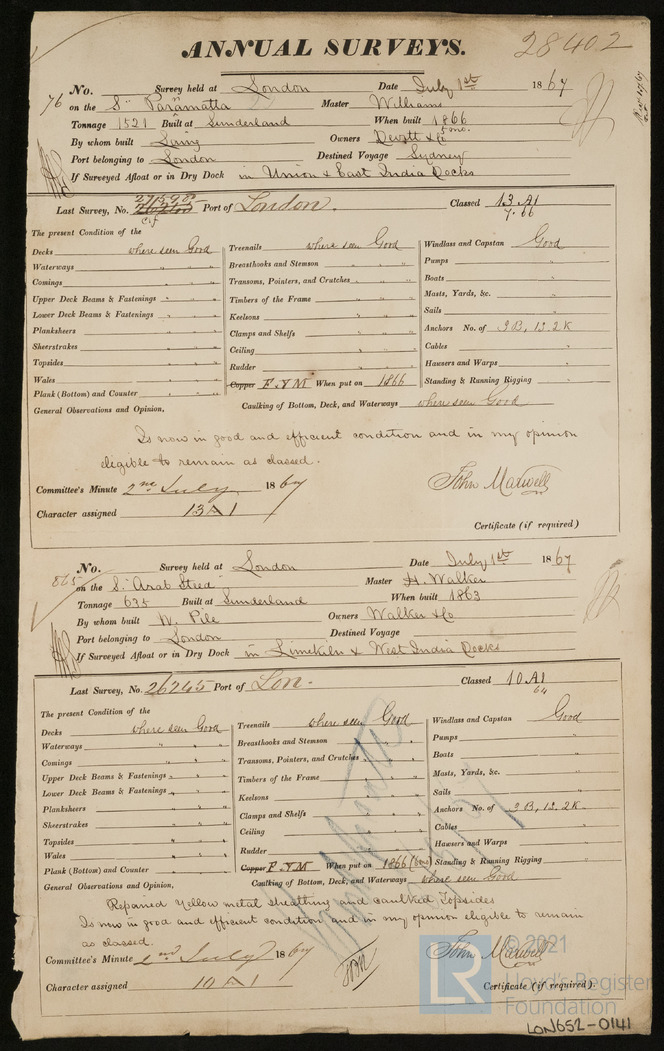 ANNUAL SURVEYS.
28402
76
No. Survey held at London Date July 1st 1867
on the S. Paramatta Master Williams
Tonnage 1521 Built at Sunderland When built 1866 5 mo.
By whom built Laing Owners Devitt & Co
Port belonging to London Destined Voyage Sydney
If Surveyed Afloat or in Dry Dock in Union & East India Docks
Last Survey, No. Port of London. Classed 13 A1
7.66
The present Condition of the
Decks where seen Good Treenails where seen Good Windlass and Capstan Good
Waterways " " Breasthooks and Stemson " " Pumps "
Comings " " Transoms, Pointers, and Crutches " " Boats "
Upper Deck Beams & Fastenings " " Timbers of the Frame " " Masts, Yards, &c. "
Lower Deck Beams & Fastenings " " Keelsons " " Sails "
Planksheers " " Clamps and Shelfs " " Anchors No. of 3B, 1S. 2K
Sheerstrakes " " Ceiling " " Cables "
Topsides " " Rudder " " Hawsers and Warps "
Wales " " Copper F. & M When put on 1866 Standing & Running Rigging "
Plank (Bottom) and Counter " "
General Observations and Opinion, Caulking of Bottom, Deck, and Waterways where seen Good
Is now in good and efficient condition and in my opinion
eligible to remain as classed.
Committee's Minute 2nd July 1867 John Maxwell
Character assigned 13 A 1
Certificate (if required)
865
No. Survey held at London Date July 1st 1867
on the S. Arab Steed Master H. Walker
Tonnage 635 Built at Sunderland When built 1863
By whom built W. Pile Owners Walker & Co
Port belonging to London Destined Voyage
If Surveyed Afloat or in Dry Dock in Limekiln & West India Docks
Last Survey, No. 26245 Port of Lon. Classed 10 A1
64
The present Condition of the
Decks where seen Good Treenails where seen Good Windlass and Capstan Good
Waterways " " Breasthooks and Stemson " " Pumps "
Comings " " Transoms, Pointers, and Crutches " " Boats "
Upper Deck Beams & Fastenings " " Timbers of the Frame " " Masts, Yards, &c. "
Lower Deck Beams & Fastenings " " Keelsons " " Sails "
Planksheers " " Clamps and Shelfs " " Anchors No. of 3B, 1S. 2K
Sheerstrakes " " Ceiling " " Cables "
Topsides " " Rudder " " Hawsers and Warps "
Wales " " Copper F. & M When put on 1866 Standing & Running Rigging "
Plank (Bottom) and Counter " "
General Observations and Opinion, Caulking of Bottom, Deck, and Waterways where seen Good
Repaired Yellow metal sheathing and caulked Topsides
Is now in good and efficient condition and in my opinion eligible to remain
as classed.
Committee's Minute 2nd July 1867 John Maxwell
Character assigned 10 A 1
Certificate (if required).
LR
© 2021
Lloyd's Register
Foundation
LON652-0141